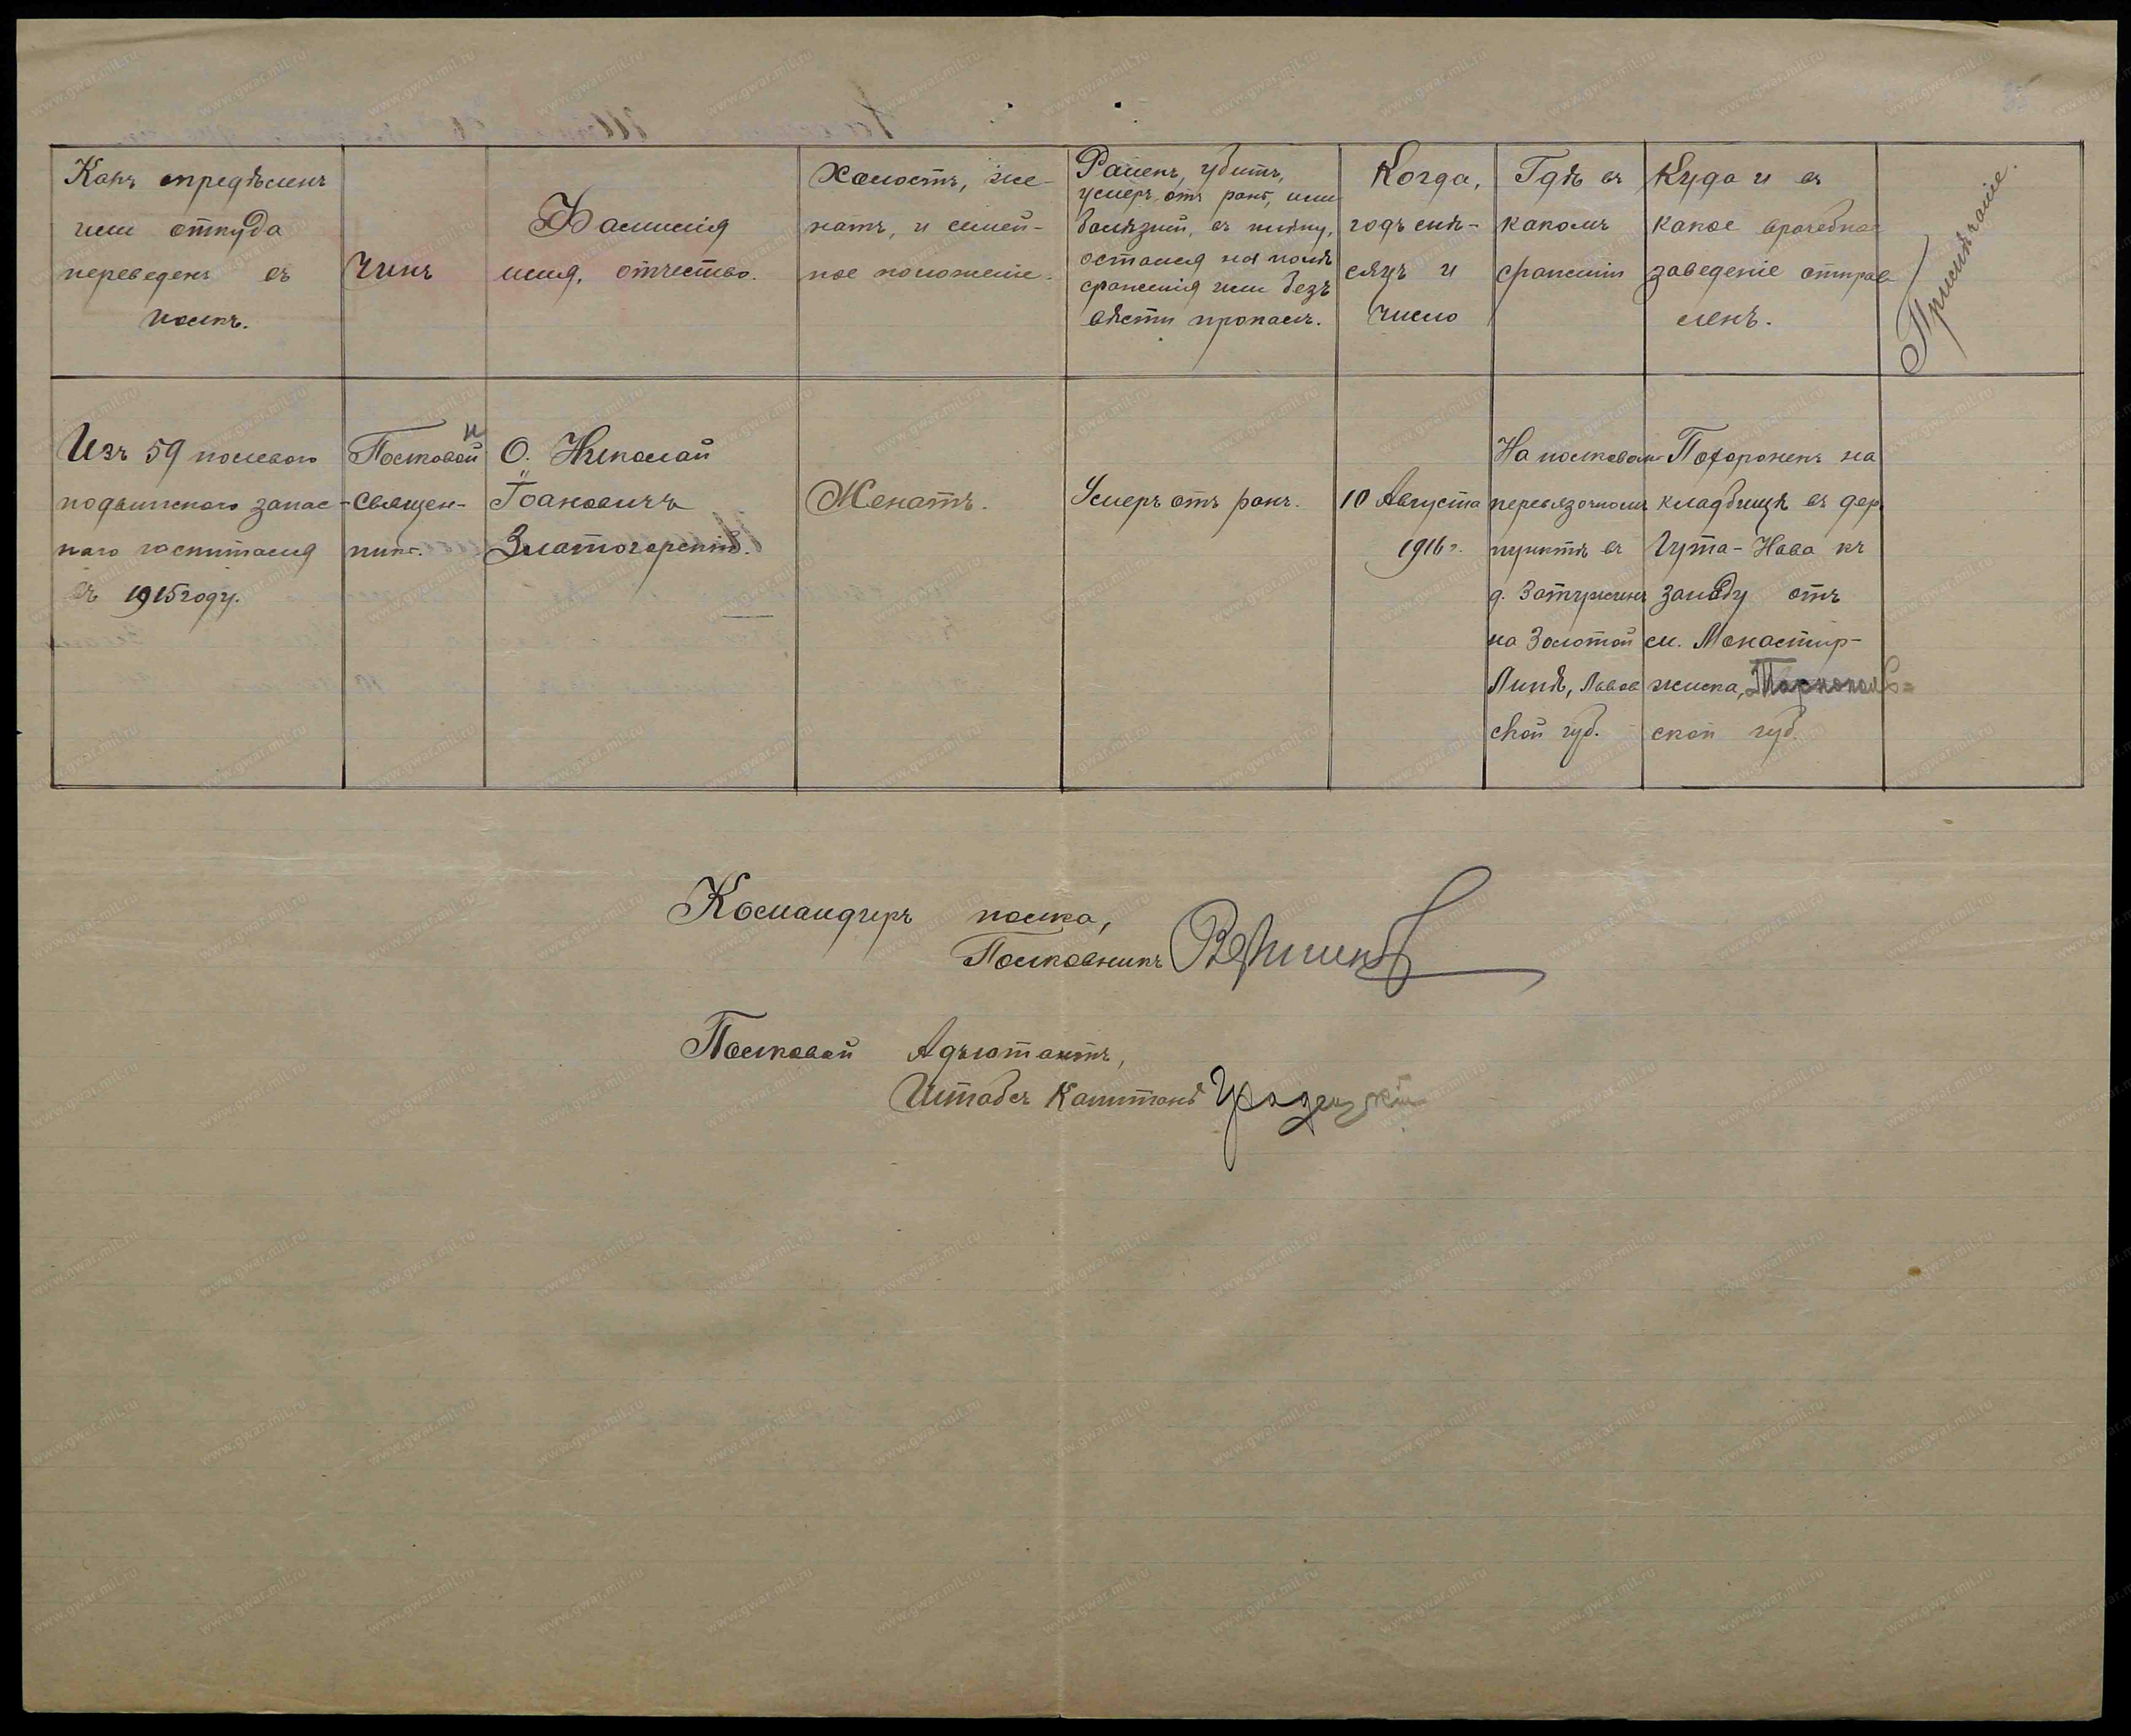 Какъ опредѣленъ
или откуда
переведенъ въ
полкъ.
Чинъ
Фамилія
имя, отчество.
Холостъ, же-
натъ, и семей-
ное положеніе.
Раненъ, убитъ,
умеръ отъ ранъ, или
болѣзни, въ плѣну,
остался на полѣ
сраженія или безъ
вѣсти пропалъ.
Когда,
годъ мѣ-
сяцъ и
число
Гдѣ въ
какомъ
сраженіи
Куда и въ
какое врачебное
заведеніе отправ
ленъ.
Примѣчаніе.
Изъ 59 полевого
подвижного запас-
ного госпиталя
въ 1915 году.
Полковой
Священ-
никъ.
О. Николай
Іоановичъ
Златогорскій.
Женатъ.
Умеръ отъ ранъ.
10 Августа
1916 г.
На полковом
перевязочномъ
пунктѣ въ
д. Затуржинъ
на Золотой
Липѣ, Львов
ской губ.
Похороненъ на
кладбищѣ въ дер.
Гута-Нова къ
западу отъ
м. Монастир-
жиска, Тарнополь-
ской губ.
Командиръ полка,
Полковникъ
Полковой Адъютантъ,
Штабсъ Капитанъ